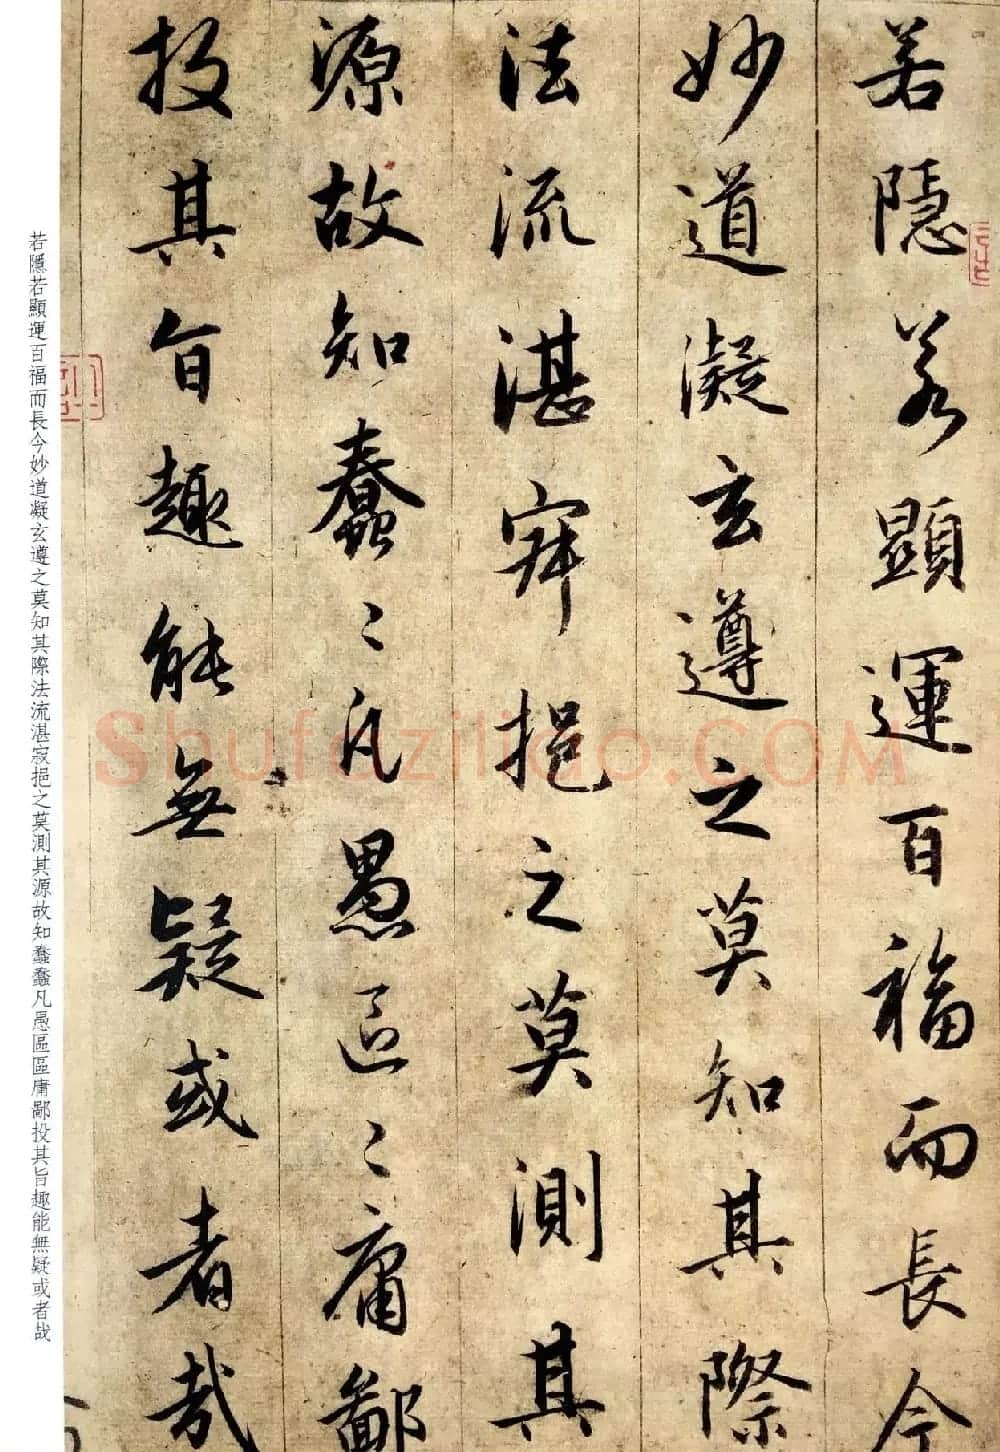 若隱若顯運百福而長今
妙道凝玄遵之莫知其際
法流湛寂挹之莫測其
源故知蠢〻凡愚區〻庸鄙
投其旨趣能無疑或者哉
若隱若顯運百福而長今妙道凝玄遵之莫知其際法流湛寂挹之莫測其源故知蠢蠢凡愚區區庸鄙投其旨趣能無疑或者哉
Shufaziliao.COM